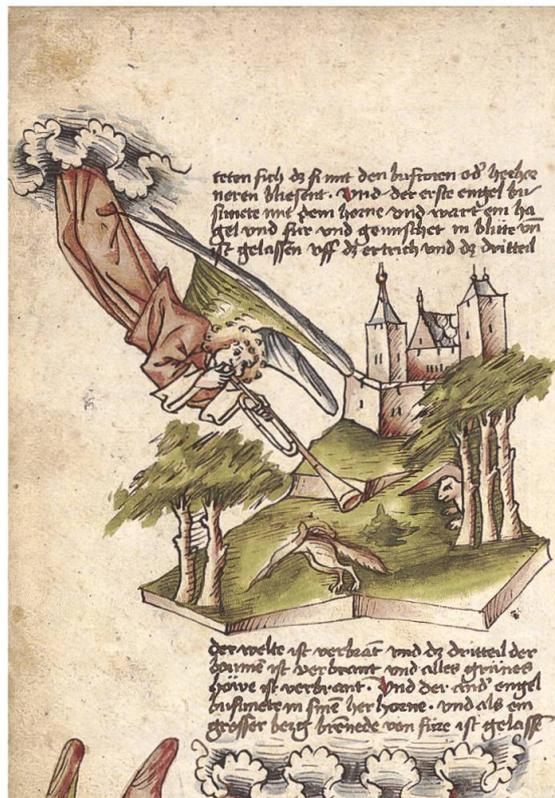 teten sich dz si mit den busunen od' herhor
neren bliesent. Vnd der erste engel bu
sunete mit dem horne vnd wart ein ha
gel vnd für vnd gemischet in blüte vn̄
ist gelassen vff dz ertrich vnd dz dritteil
der welte ist verbrāt vnd dz dritteil der
boumen ist verbrant vnd alles grünes
höwe ist verbrant. Vnd der and' engel
busunete in sinē her horne. vnd als ein
grosser berg brēnede von füre ist gelassē